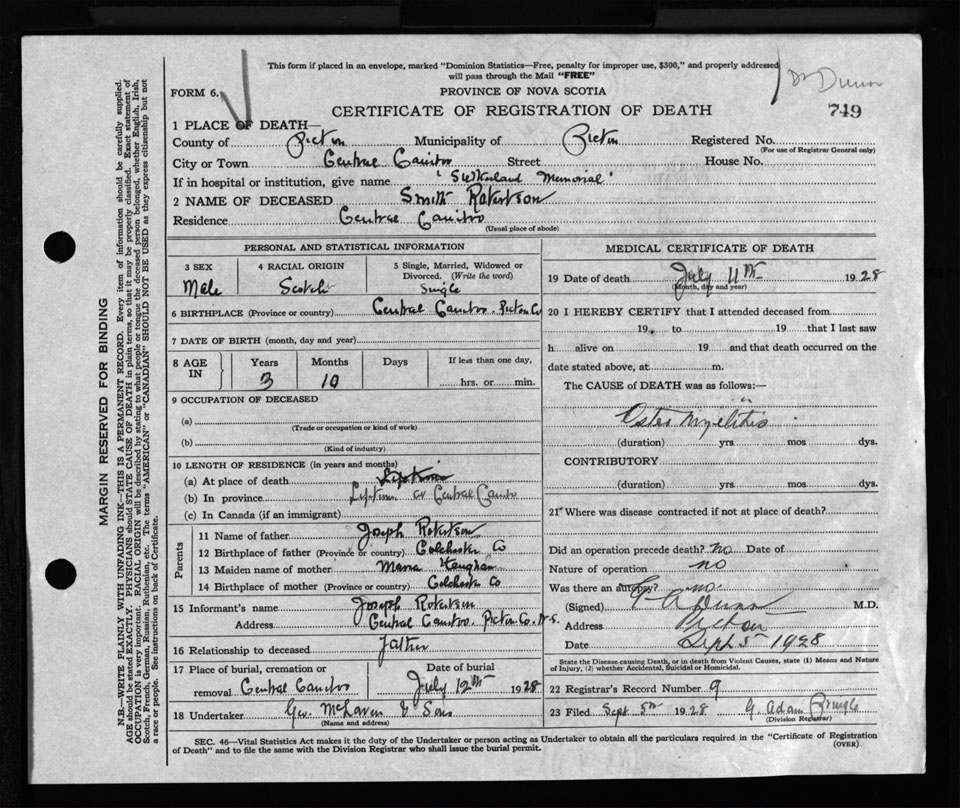 This form if placed in an envelope, marked "Dominion Statistics—Free, penalty for improper use, $300," and properly addressed
will pass through the Mail "FREE"
Dr Dunn
FORM 6.
PROVINCE OF NOVA SCOTIA
749
CERTIFICATE OF REGISTRATION OF DEATH
1 PLACE OF DEATH—
County of Pictou Municipality of Pictou Registered No.
(For use of Registrar General only)
City or Town Central Caribou Street House No.
If in hospital or institution, give name 'Sutherland Memorial'
2 NAME OF DECEASED Smith Robertson
Residence Central Caribou
(Usual place of abode)
PERSONAL AND STATISTICAL INFORMATION
3 SEX 4 RACIAL ORIGIN 5 Single, Married, Widowed or
Divorced. (Write the word)
Male Scotch Single
6 BIRTHPLACE (Province or country) Central Caribou. Pictou Co
7 DATE OF BIRTH (month, day and year)
8 AGE IN Years Months Days If less than one day,
3 10 hrs. or min.
9 OCCUPATION OF DECEASED
(a)
(Trade or occupation or kind of work)
(b)
(Kind of industry)
10 LENGTH OF RESIDENCE (in years and months)
(a) At place of death Lifetime
(b) In province Lifetime at Central Caribou
(c) In Canada (if an immigrant)
Parents
11 Name of father Joseph Robertson
12 Birthplace of father (Province or country) Colchester Co
13 Maiden name of mother
14 Birthplace of mother (Province or country) Colchester Co
15 Informant's name Joseph Robertson
Address Central Caribou. Pictou Co. N.S.
16 Relationship to deceased Father
17 Place of burial, cremation or Date of burial
removal Central Caribou July 12th 1928
18 Undertaker Geo. McLaren & Sons
(Name and address)
MEDICAL CERTIFICATE OF DEATH
19 Date of death July 11th 1928
(Month, day and year)
20 I HEREBY CERTIFY that I attended deceased from
19 to 19 that I last saw
h alive on 19 and that death occurred on the
date stated above, at m.
The CAUSE of DEATH was as follows:—
Osteo Myelitis
(duration) yrs. mos. dys.
CONTRIBUTORY
(duration) yrs. mos. dys.
21 Where was disease contracted if not at place of death?
Did an operation precede death? no Date of
Nature of operation no
Was there an autopsy? no
(Signed) Dunn M.D.
Address Pictou
Date Sept 5 1928
State the Disease causing Death, or in death from Violent Causes, state (1) Means and Nature
of Injury, (2) whether Accidental, Suicidal or Homicidal.
22 Registrar's Record Number 9
23 Filed Sept 5th 1928 G. Adam Pringle
(Division Registrar)
SEC. 46—Vital Statistics Act makes it the duty of the Undertaker or person acting as Undertaker to obtain all the particulars required in the "Certificate of Registration
of Death" and to file the same with the Division Registrar who shall issue the burial permit.
(OVER)
MARGIN RESERVED FOR BINDING
N.B.—WRITE PLAINLY WITH UNFADING INK—THIS IS A PERMANENT RECORD. Every item of information should be carefully supplied.
AGE should be stated EXACTLY. PHYSICIANS should STATE CAUSE OF DEATH in plain terms, so that it may be properly classified. Exact statement of
OCCUPATION is very important. RACIAL ORIGIN will be described by stating to what people or tongue the deceased person belonged, whether English, Irish,
Scotch, French, German, Russian, Ruthenian, etc. The terms "AMERICAN" or "CANADIAN" SHOULD NOT BE USED as they express citizenship but not
a race or people. See instructions on back of Certificate.